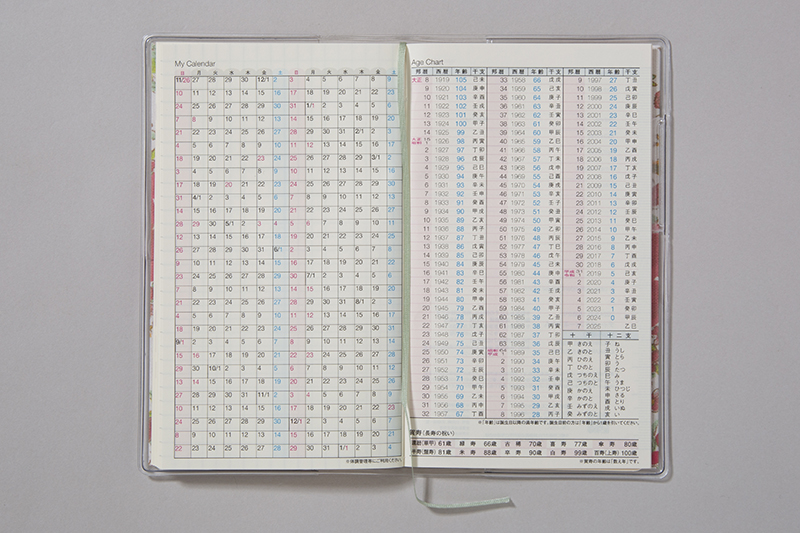 My Calendar
日 月 火 水 木 金 土 日 月 火 水 木 金 土
11/26 27 28 29 30 12/1 2 3 4 5 6 7 8 9
10 11 12 13 14 15 16 17 18 19 20 21 22 23
24 25 26 27 28 29 30 31 1/1 2 3 4 5 6
7 8 9 10 11 12 13 14 15 16 17 18 19 20
21 22 23 24 25 26 27 28 29 30 31 2/1 2 3
4 5 6 7 8 9 10 11 12 13 14 15 16 17
18 19 20 21 22 23 24 25 26 27 28 29 3/1 2
3 4 5 6 7 8 9 10 11 12 13 14 15 16
17 18 19 20 21 22 23 24 25 26 27 28 29 30
31 4/1 2 3 4 5 6 7 8 9 10 11 12 13
14 15 16 17 18 19 20 21 22 23 24 25 26 27
28 29 30 5/1 2 3 4 5 6 7 8 9 10 11
12 13 14 15 16 17 18 19 20 21 22 23 24 25
26 27 28 29 30 31 6/1 2 3 4 5 6 7 8
9 10 11 12 13 14 15 16 17 18 19 20 21 22
23 24 25 26 27 28 29 30 7/1 2 3 4 5 6
7 8 9 10 11 12 13 14 15 16 17 18 19 20
21 22 23 24 25 26 27 28 29 30 31 8/1 2 3
4 5 6 7 8 9 10 11 12 13 14 15 16 17
18 19 20 21 22 23 24 25 26 27 28 29 30 31
9/1 2 3 4 5 6 7 8 9 10 11 12 13 14
15 16 17 18 19 20 21 22 23 24 25 26 27 28
29 30 10/1 2 3 4 5 6 7 8 9 10 11 12
13 14 15 16 17 18 19 20 21 22 23 24 25 26
27 28 29 30 31 11/1 2 3 4 5 6 7 8 9
10 11 12 13 14 15 16 17 18 19 20 21 22 23
24 25 26 27 28 29 30 12/1 2 3 4 5 6 7
8 9 10 11 12 13 14 15 16 17 18 19 20 21
※体調管理等にご利用ください
Age Chart
邦暦 西暦 年齢 干支 邦暦 西暦 年齢 干支 邦暦 西暦 年齢 干支
大正 8 1919 105 己未 33 1958 66 戊戌 9 1997 27 丁丑
9 1920 104 庚申 34 1959 65 己亥 10 1998 26 戊寅
10 1921 103 辛酉 35 1960 64 庚子 11 1999 25 己卯
11 1922 102 壬戌 36 1961 63 辛丑 12 2000 24 庚辰
12 1923 101 癸亥 37 1962 62 壬寅 13 2001 23 辛巳
13 1924 100 甲子 38 1963 61 癸卯 14 2002 22 壬午
14 1925 99 乙丑 39 1964 60 甲辰 15 2003 21 癸未
1926 98 丙寅 40 1965 59 乙巳 16 2004 20 甲申
2 1927 97 丁卯 41 1966 58 丙午 17 2005 19 乙酉
3 1928 96 戊辰 42 1967 57 丁未 18 2006 18 丙戌
4 1929 95 己巳 43 1968 56 戊申 19 2007 17 丁亥
5 1930 94 庚午 44 1969 55 己酉 20 2008 16 戊子
6 1931 93 辛未 45 1970 54 庚戌 21 2009 15 己丑
7 1932 92 壬申 46 1971 53 辛亥 22 2010 14 庚寅
8 1933 91 癸酉 47 1972 52 壬子 23 2011 13 辛卯
9 1934 90 甲戌 48 1973 51 癸丑 24 2012 12 壬辰
10 1935 89 乙亥 49 1974 50 甲寅 25 2013 11 癸巳
11 1936 88 丙子 50 1975 49 乙卯 26 2014 10 甲午
12 1937 87 丁丑 51 1976 48 丙辰 27 2015 9 乙未
13 1938 86 戊寅 52 1977 47 丁巳 28 2016 8 丙申
14 1939 85 己卯 53 1978 46 戊午 29 2017 7 丁酉
15 1940 84 庚辰 54 1979 45 己未 30 2018 6 戊戌
16 1941 83 辛巳 55 1980 44 庚申 2019 5 己亥
17 1942 82 壬午 56 1981 43 辛酉 2 2020 4 庚子
18 1943 81 癸未 57 1982 42 壬戌 3 2021 3 辛丑
19 1944 80 甲申 58 1983 41 癸亥 4 2022 2 壬寅
20 1945 79 乙酉 59 1984 40 甲子 5 2023 1 癸卯
21 1946 78 丙戌 60 1985 39 乙丑 6 2024 0 甲辰
22 1947 77 丁亥 61 1986 38 丙寅 7 2025 乙巳
23 1948 76 戊子 62 1987 37 丁卯 十干 十二支
24 1949 75 己丑 63 1988 36 戊辰 甲 きのえ 子 ね
25 1950 74 庚寅 1989 35 己巳 乙 きのと 丑 うし
26 1951 73 辛卯 2 1990 34 庚午 丙 ひのえ 寅 とら
27 1952 72 壬辰 3 1991 33 辛未 丁 ひのと 卯 う
28 1953 71 癸巳 4 1992 32 壬申 戊 つちのえ 辰 たつ
29 1954 70 甲午 5 1993 31 癸酉 己 つちのと 巳 み
30 1955 69 乙未 6 1994 30 甲戌 庚 かのえ 午 うま
31 1956 68 丙申 7 1995 29 乙亥 辛 かのと 未 ひつじ
32 1957 67 丁酉 8 1996 28 丙子 壬 みずのえ 申 さる
癸 みずのと 酉 とり
戌 いぬ
亥 い
※「年齢」は誕生日以降の満年齢です。誕生日前の方は「年齢」から1歳を引いてください。
賀寿(長寿の祝い)
還暦(華甲) 61歳 緑寿 66歳 古稀 70歳 喜寿 77歳 傘寿 80歳
半寿(盤寿) 81歳 米寿 88歳 卒寿 90歳 白寿 99歳 百寿(上寿) 100歳
※賀寿の年齢は「数え年」です。